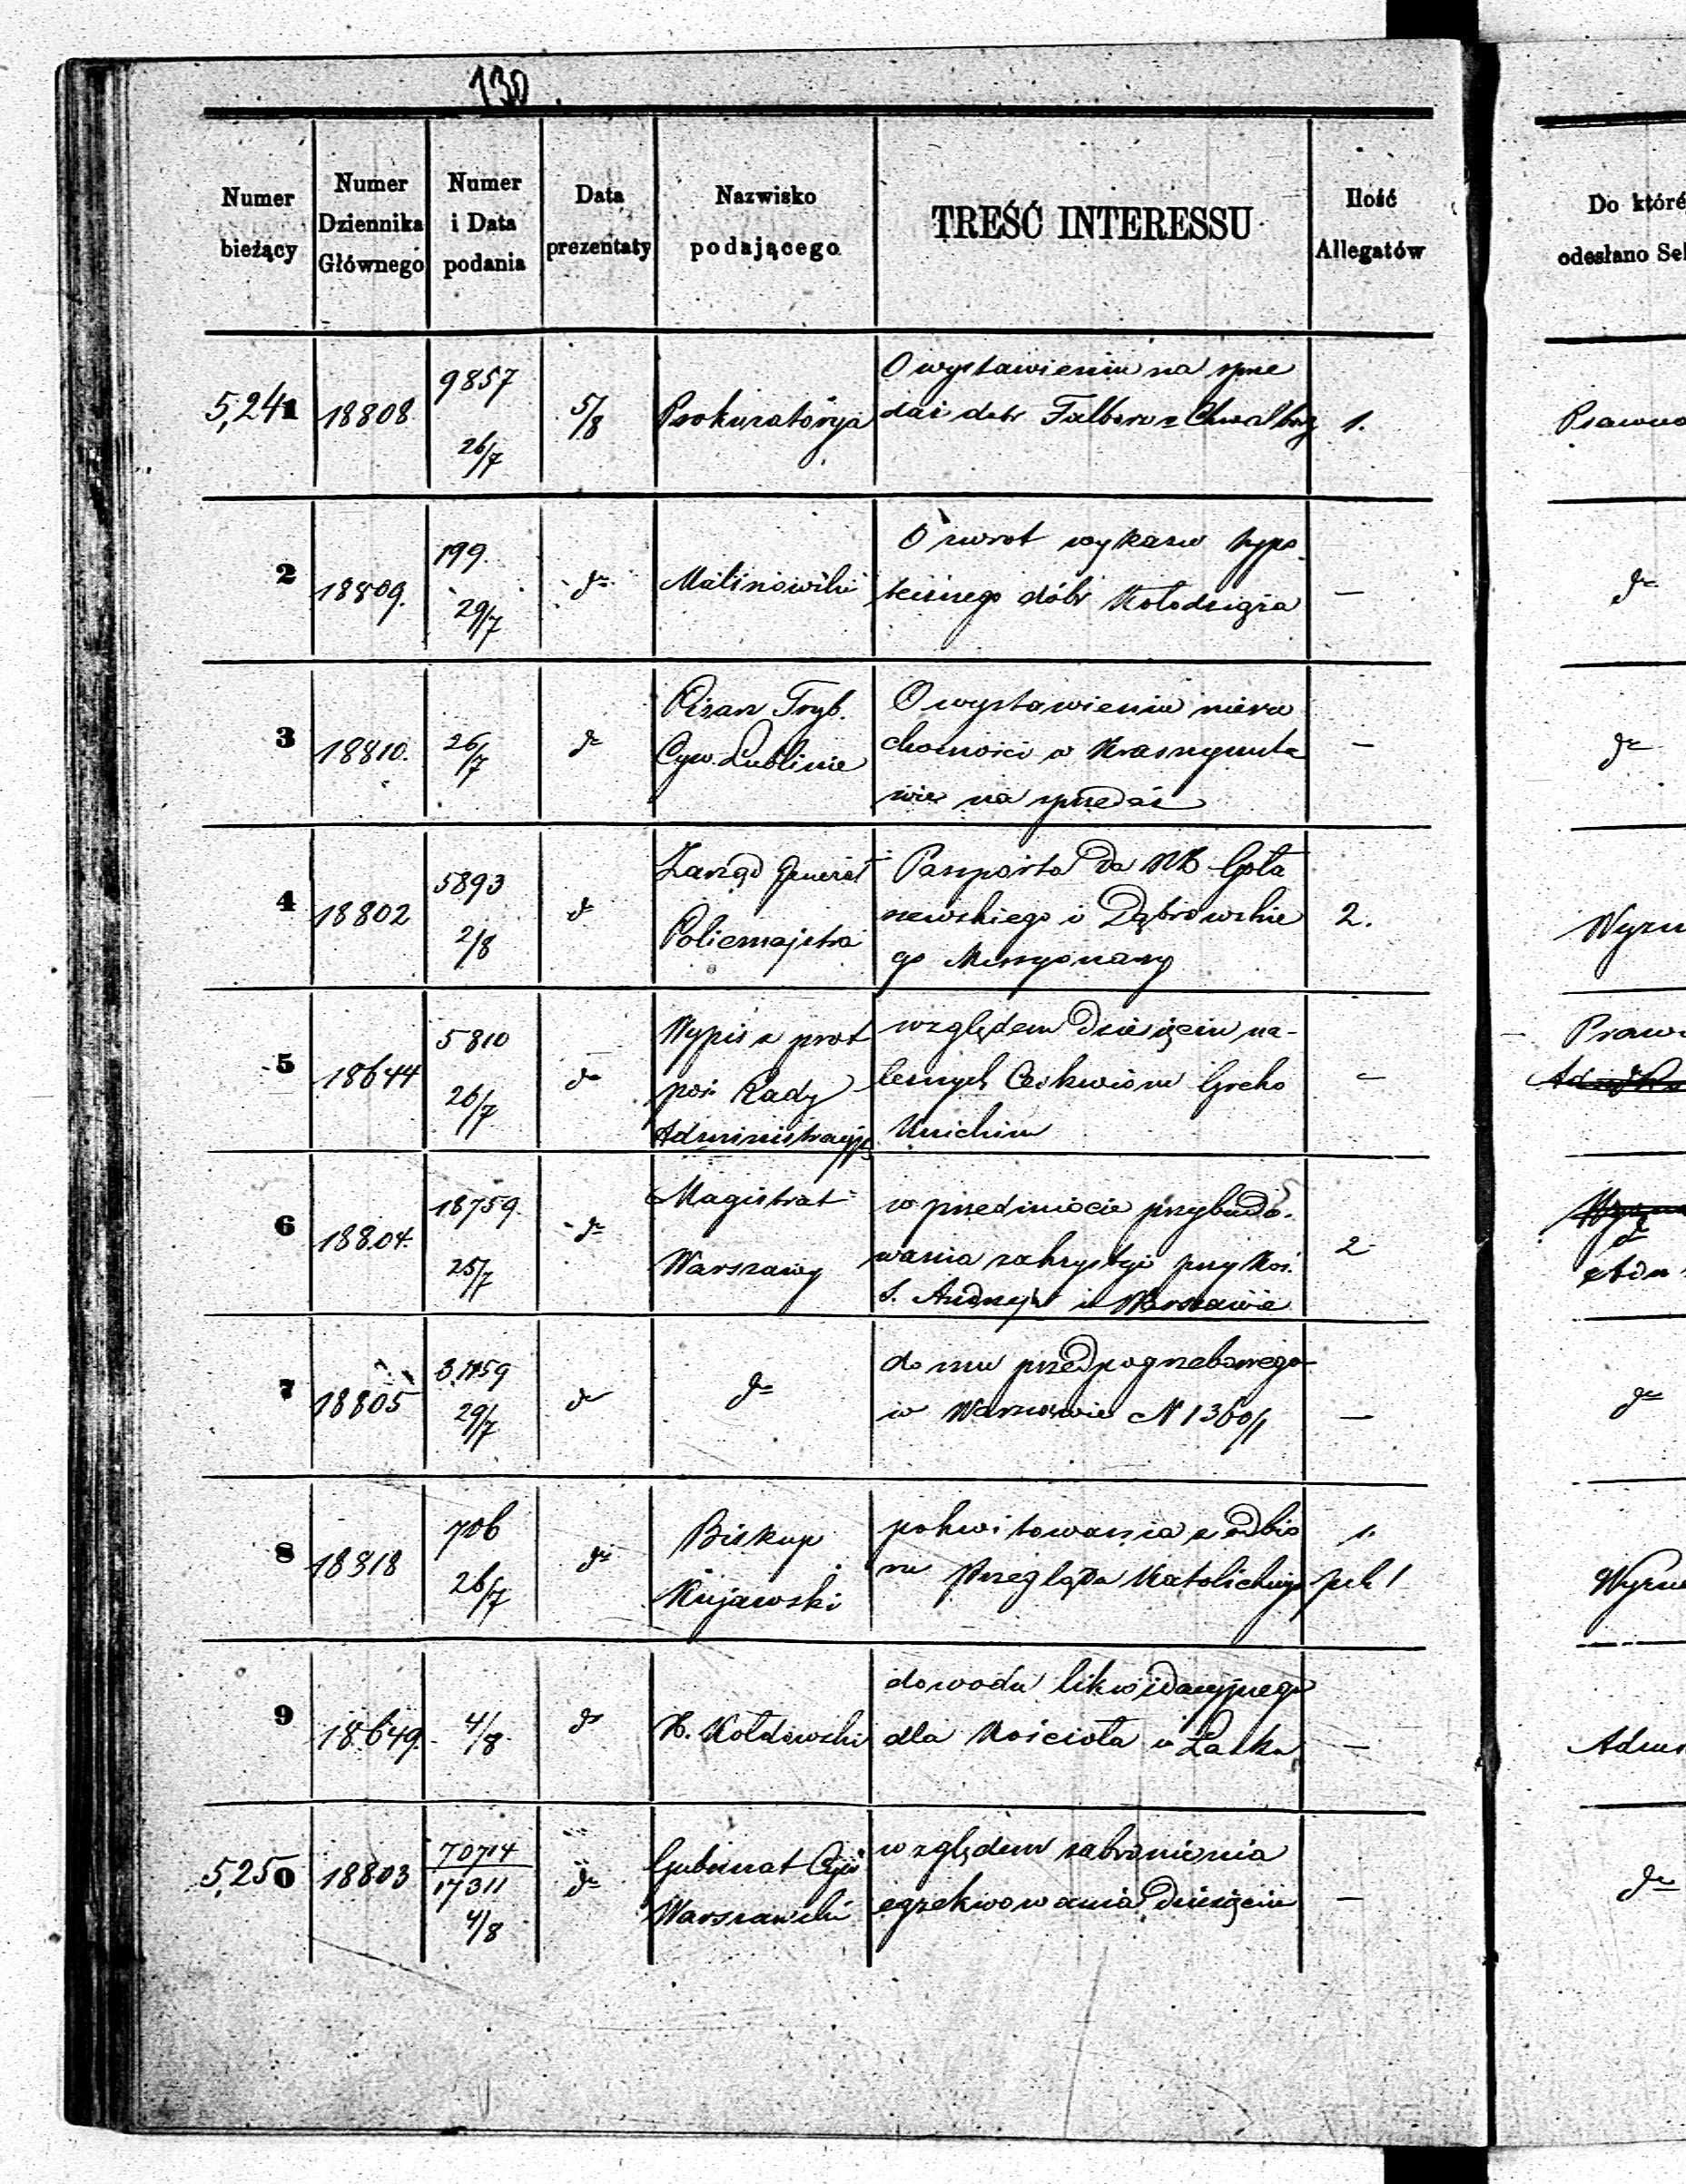 130.
Numer bieżący
Numer Dziennika Głównego
Numer i Data podania
Data prezentaty
Nazwisko podającego
TREŚĆ INTERESSU
Ilość Allegatów
Do któré
odesłano Sek
5,241 18808 9857 26/7 5/8 Prokuratorya
O wystawieniu na sprze
daż dóbr Falborz Chwalborz
1.
Prawno
2 18809. 199. 29/7 do Malinowski
O zwrot wykazu hypo-
tecznego dóbr Kołodziąża
—
do
3 18810. 26/7 do
Pisarz Tryb.
Cyw. Lublinie
O wystawieniu nieru
chomości w Krasnymsta
wie na sprzedaż
—
do
4 18802 5893 2/8 do
Zarząd Generał
Policmajstra
Paszporta da
newskiego i Dąbrowskie
go Missyonarzy
2.
Wyzn
5 18644 5810 26/7 do
Wypis z prot
pos. Rady
Administracyj
względem dziesięcin na-
leżnych Cerkwiom Greko
Unickim
—
Prawn
6 18804. 18759. 25/7 do
Magistrat
Warszawy
w przedmiocie przybudo-
wania zakrystyi przy Koś.
S. Andrzeja w Warszawie
2
do
7 18805 29/7 do do
domu przedpogrzebowego
w Warszawie N 1360/1
—
do
8 18818 706 26/7 do
Biskup
Kujawski
pokwitowania z odbio
ru Przeglądu Katolickiego
1.
Wyzn
9 18649. 4/8 do
K. Kołdowski
dowodu likwidacyjnego
dla Kościoła w Łasku
—
Admi
5,250 18803 70714 17311 4/8 do
Gubernat Cyw
Warszawski
względem zabronienia
egzekwowania dziesięcin
—
do